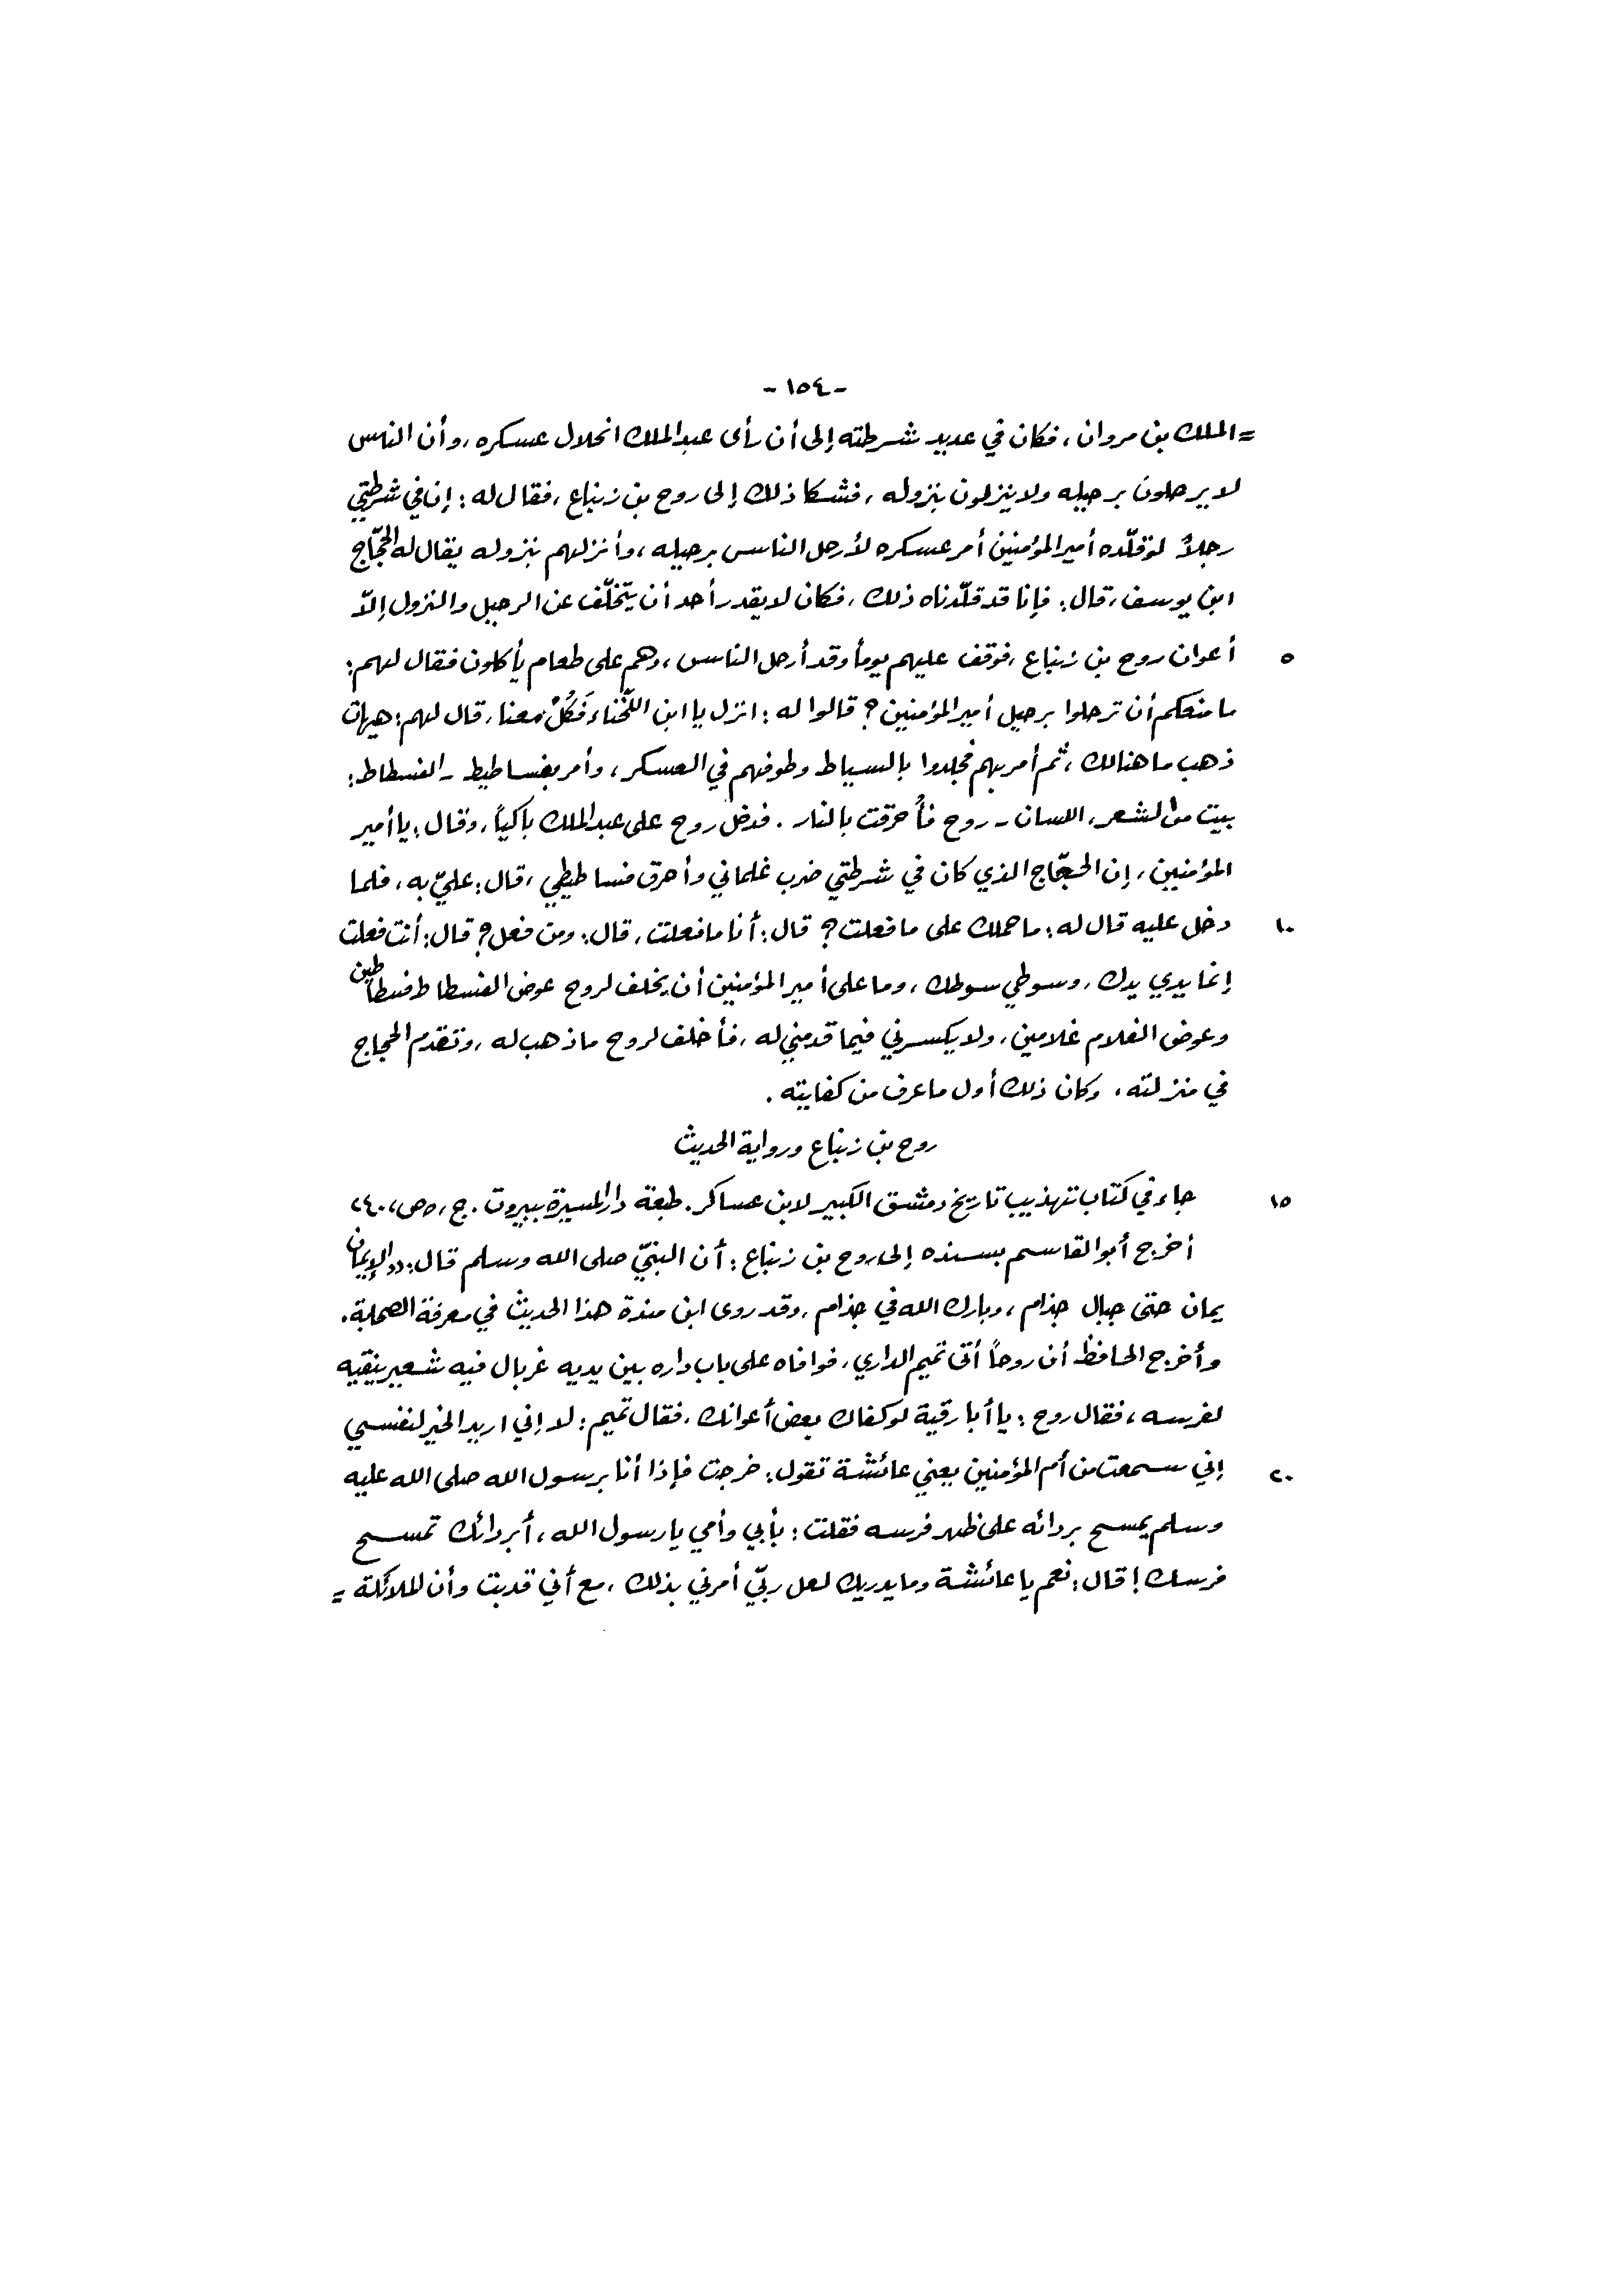 - ١٥٤ -
= الملك بن مروان، فكان في عديد شرطته إلى أن رأى عبد الملك انحلال عسكره، وأن الناس
لا يرحلون برحيله ولا ينزلون بنزوله، فشكا ذلك إلى روح بن زنباع، فقال له: إن في شرطتي
رجلاً لو قلّده أمير المؤمنين أمر عسكره لأرحل الناس برحيله، وأنزلهم بنزوله يقال له الحجّاج
ابن يوسف، قال: فإنا قد قلّدناه ذلك، فكان لا يقدر أحد أن يتخلّف عن الرحيل والنزول إلاّ
٥ أعوان روح بن زنباع، فوقف عليهم يوماً وقد أرحل الناس، وهم على طعام يأكلون فقال لهم:
ما منعكم أن ترحلوا برحيل أمير المؤمنين؟ قالوا له: انزل يا ابن اللّخناء فَكُلْ معنا، قال لهم: هيهات
ذهب ما هنالك، ثم أمر بهم فجلدوا بالسياط وطوفهم في العسكر، وأمر بفساطيط - الفسطاط:
بيت من الشعر، اللسان - روح فأُحرقت بالنار. فدخل روح على عبد الملك باكياً، وقال: يا أمير
المؤمنين، إن الحجّاج الذي كان في شرطتي ضرب غلماني وأحرق فساطيطي، قال: عليّ به، فلما
١٠ دخل عليه قال له: ما حملك على ما فعلت؟ قال: أنا ما فعلت، قال: ومن فعل؟ قال: أنت فعلت
إنما يدي يدك، وسوطي سوطك، وما على أمير المؤمنين أن يخلف لروح عوض الفسطاط فسطاطين
وعوض الغلام غلامين، ولا يكسرني فيما قدمني له، فأخلف لروح ما ذهب له، وتقدم الحجاج
في منزلته، وكان ذلك أول ما عرف من كفايته.
روح بن زنباع ورواية الحديث
١٥ جاء في كتاب تهذيب تاريخ دمشق الكبير لابن عساكر. طبعة دار المسيرة ببيروت. ج، ٥ ص، ٢٤٠
أخرج أبو القاسم بسنده إلى روح بن زنباع: أن النبيّ صلى الله وسلم قال: «الإيمان
يمان حتى جبال جذام، وبارك الله في جذام، وقد روى ابن مندة هذا الحديث في معرفة الصحابة.
وأخرج الحافظ أن روحاً أتى تميم الداري، فوافاه على باب داره بين يديه غربال فيه شعير ينقيه
لفرسه، فقال روح: يا أبا رقية لو كفاك بعض أعوانك، فقال تميم: لا إني اريد الخير لنفسي
٢٠ إني سمعت من أم المؤمنين يعني عائشة تقول: خرجت فإذا أنا برسول الله صلى الله عليه
وسلم يمسح بردائه على ظهر فرسه فقلت: بأبي وأمي يا رسول الله، أبردائك تمسح
فرسك! قال: نعم يا عائشة وما يدريك لعل ربّي أمرني بذلك، مع أني قد بت وأن الملائكة =